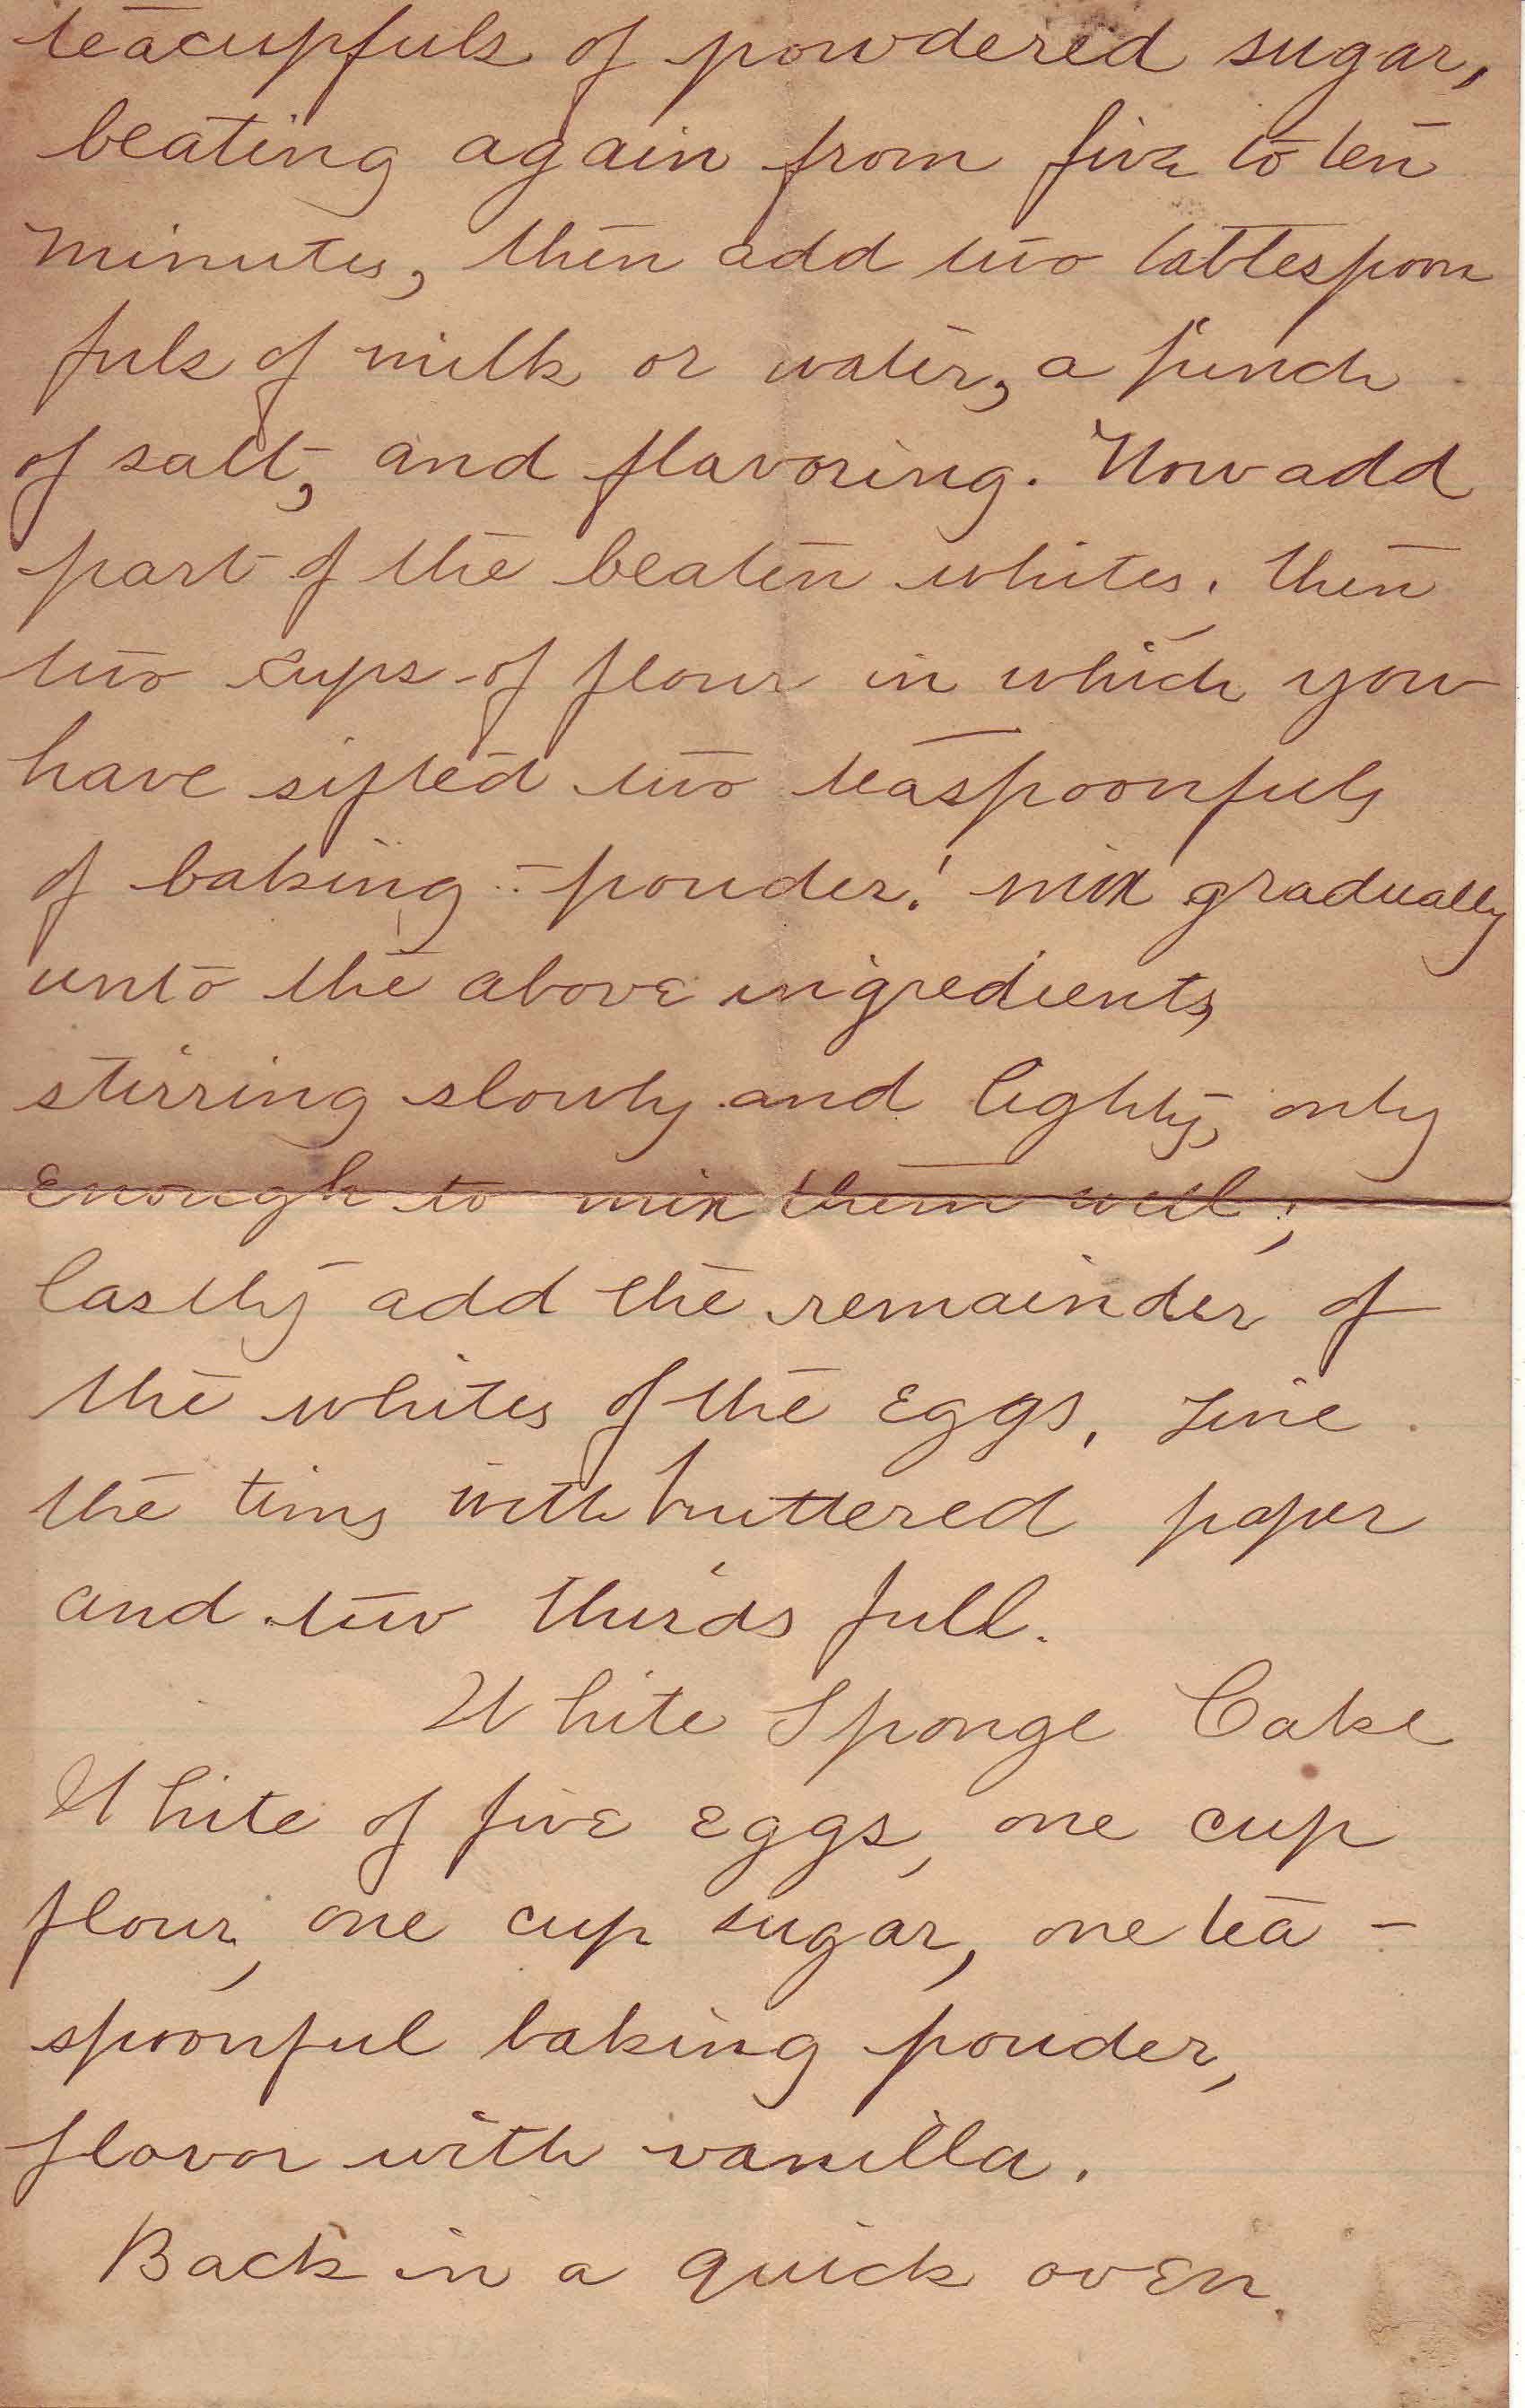 teacupfuls of powdered sugar,
beating again from five to ten
minutes, then add two tablespoon
fuls of milk or water, a pinch
of salt, and flavoring. Now add
part of the beaten whites, then
two cups of flour in which you
have sifted two teaspoonfuls
of baking-powder; mix gradually
unto the above ingredients,
stirring slowly and lightly, only
enough to mix them well;
lastly add the remainder of
the whites of the eggs, Line
the tins with buttered paper
and two thirds full.
White Sponge Cake
White of five eggs, one cup
flour, one cup sugar, one tea-
spoonful baking pouder,
flavor with vanilla.
Back in a quick oven.